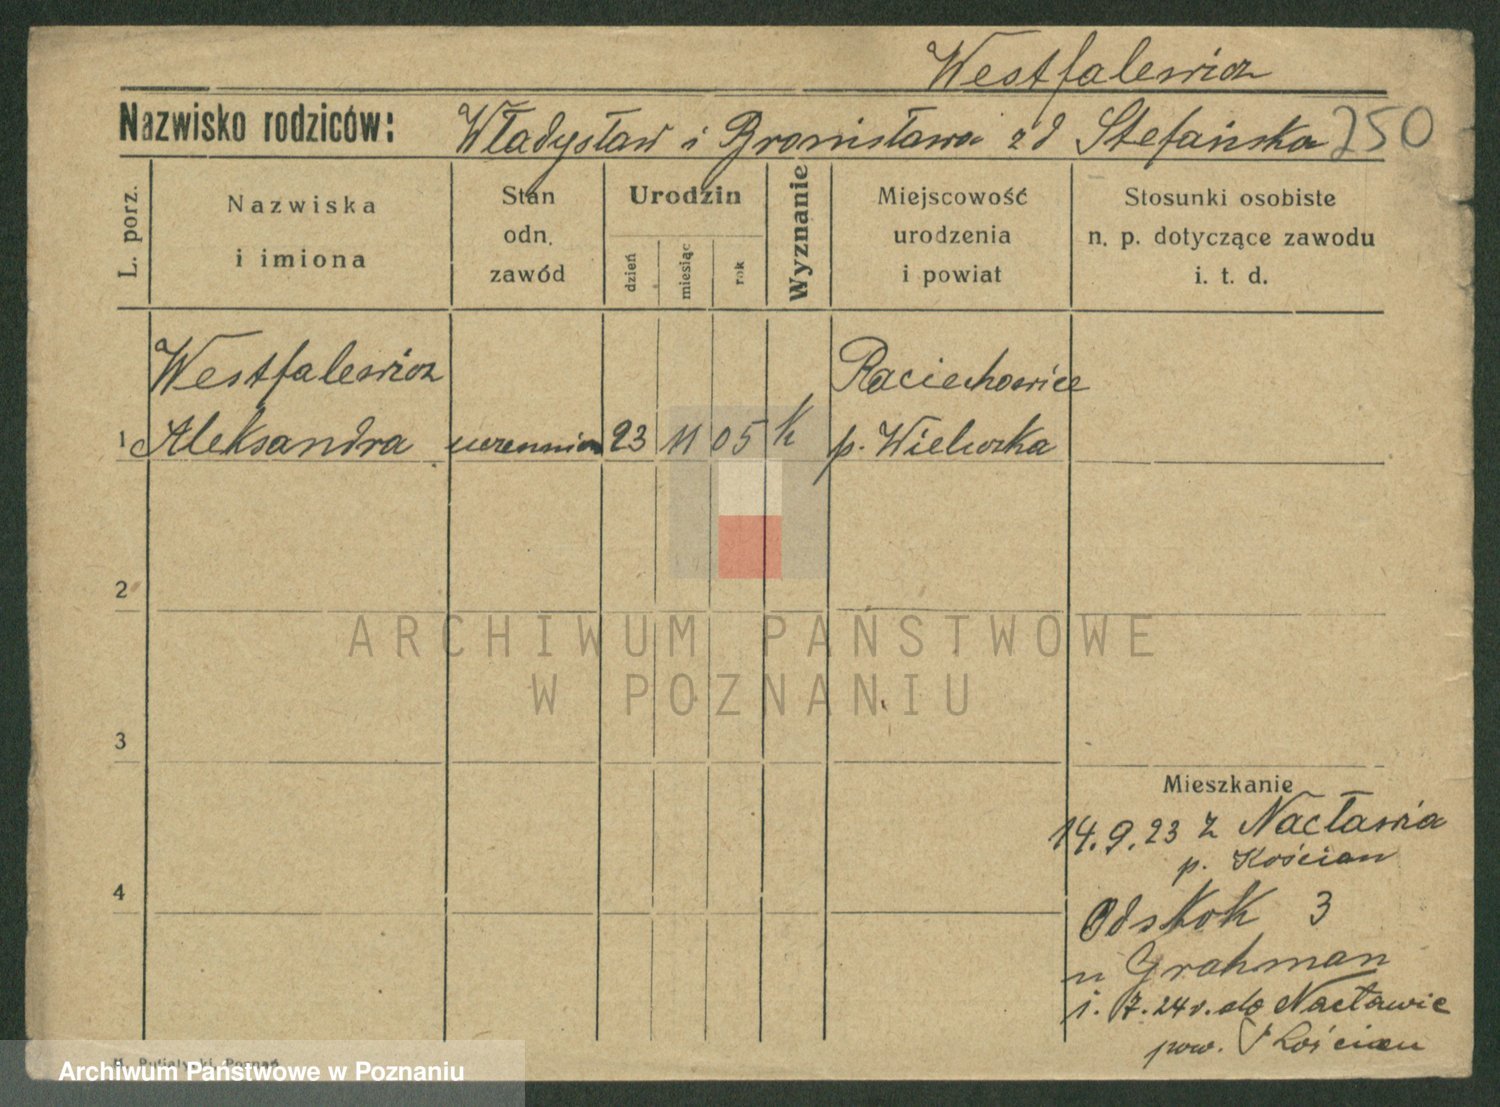 Westfalewicz
Nazwisko rodziców: Władysław i Bronisława zd Stefańska 250
L. porz.
Nazwiska
i imiona
Stan
odn.
zawód
Urodzin
dzień
miesiąc
rok
Wyznanie
Miejscowość
urodzenia
i powiat
Stosunki osobiste
n. p. dotyczące zawodu
i. t. d.
Westfalewicz Raciechowice
1 Aleksandra uczennica 23 11 05 k p. Wieliczka
2
ARCHIWUM PAŃSTWOWE
W POZNANIU
3
Mieszkanie
14.9.23 z Nacławia
p. Kościan
4
Odskok 3
u Grahman
1.7.24 r. do Nacławie
pow. Kościan
Poznań
Archiwum Państwowe w Poznaniu